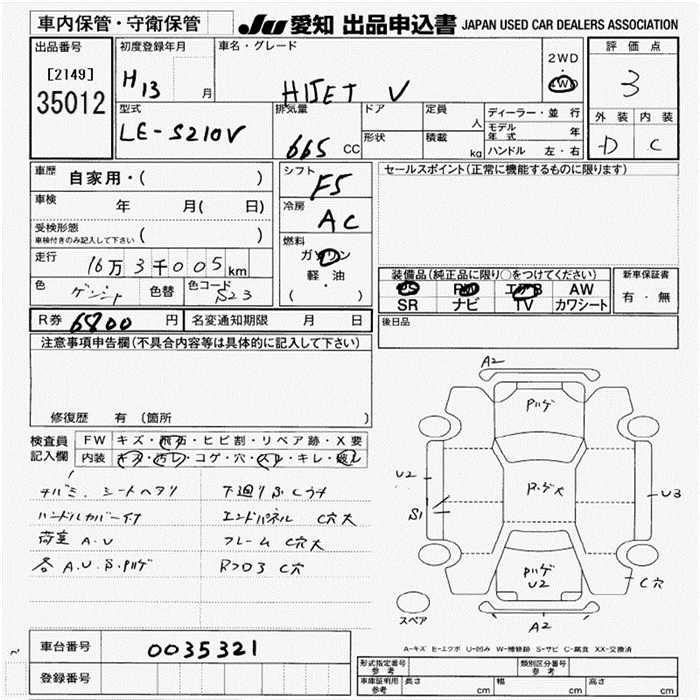 車内保管・守衛保管
JU 愛知 出品申込書 JAPAN USED CAR DEALERS ASSOCIATION
出品番号
[2149]
35012
初度登録年月
H13 月
車名・グレード
HIJET V
2WD
・
4WD
評価点
3
外装 内装
D C
型式
LE-S210V
排気量
665 CC
ドア
形状
定員
人
積載
kg
ディーラー・並行
モデル年式 年
ハンドル 左・右
車歴 自家用・( )
車検 年 月( 日)
受検形態
車検付きのみ記入して下さい ( )
走行 16万3千005km
色 色替 色コード S23
シフト F5
冷房 AC
燃料
ガソリン
軽・油
( )
セールスポイント(正常に機能するものに限ります)
装備品(純正品に限り〇をつけてください)
PS PW エアB AW
SR ナビ TV カワシート
新車保証書
有・無
R券 6800 円 名変通知期限 月 日
後日品
注意事項申告欄(不具合内容等は具体的に記入して下さい)
修復歴 有 (箇所 )
検査員
記入欄
FW キズ・飛石・ヒビ割・リペア跡・X要
内装 キズ・汚レ・コゲ・穴・スレ・キレ・破レ
ハンドルカバー
荷室 A.U
各 A.U.S.Pハゲ
下廻り
エンドパネル C穴大
フレーム C穴大
Rフロ3 C穴
A2
Pハゲ
U2
S1
U3
Pハゲ
U2
C穴
A2
スペア
A-キズ E-エクボ U-凹み W-補修跡 S-サビ C-腐食 XX-交換済
車台番号 0035321
登録番号
形式指定番号
参考
類別区分番号
参考
車庫証明用
参考
長さ cm 幅 cm 高さ cm